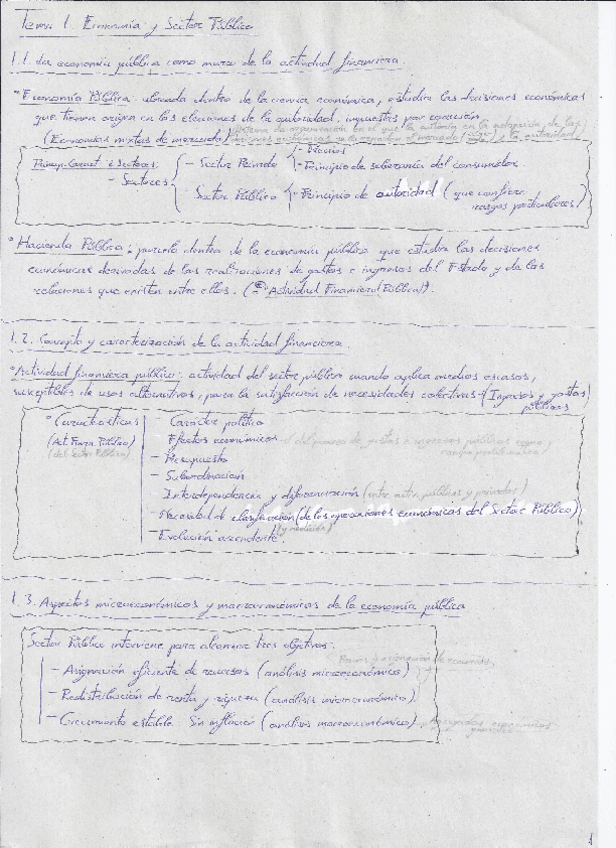 Tema 1. Economía y Sector Público
1.1. La economía pública como marco de la actividad financiera.
° Economía Pública: ubicada dentro de la ciencia económica, estudia las decisiones económicas
que tienen origen en las elecciones de la autoridad, impuestas por coacción
(Economías mixtas de mercado)
Princip. Caract. e Sectores:
- Sectores
- Sector Privado
- Precios
- Principio de soberanía del consumidor
- Sector Público
- Principio de autoridad (que confiere
rasgos particulares)
° Hacienda Pública: parcela dentro de la economía pública que estudia las decisiones
económicas derivadas de las realizaciones de gastos e ingresos del Estado y de las
relaciones que existen entre ellos. ( Actividad Financiera Pública).
1.2. Concepto y caracterización de la actividad financiera
° Actividad financiera pública: actividad del sector público cuando aplica medios escasos,
susceptibles de usos alternativos, para la satisfacción de necesidades colectivas (Ingresos y gastos
públicos
° Características
(Act. Financ. Pública)
(del Sector Público)
- Carácter político
- Efectos económicos
- Presupuesto
- Subordinación
- Interdependencia y diferenciación (entre activ. públicas y privadas)
- Necesidad de clasificación (de las operaciones económicas del Sector Público)
(y medición)
- Evolución ascendente.
1.3. Aspectos microeconómicos y macroeconómicos de la economía pública
Sector Público interviene para alcanzar tres objetivos:
- Asignación eficiente de recursos (análisis microeconómico)
- Redistribución de renta y riqueza (análisis microeconómico)
- Crecimiento estable sin inflación (análisis macroeconómico)
1